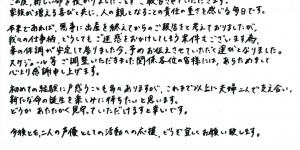 この度、新しい命を授かりましたことをご報告させていただきます。
家族が増える喜びと共に、人の親となることの責任の重さを感じる今日です。
本来であれば、無事に出産を終えてからのご報告をと考えておりましたが、
我々の仕事柄、どうしてもご迷惑をおかけしてしまう案件もございます為、
妻の体調が安定して参りました今、予めお伝えさせていただく運びとなりました。
スケジュール等ご調整いただきました関係各位の皆様には、あらためまして
心より感謝申し上げます。
初めての経験に戸惑うことも多々ありますが、これまで以上に夫婦二人で支え合い、
新たな命の誕生を楽しみに待ちたいと思います。
どうかあたたかく見守っていただけますと幸いです。
今後とも二人の声優としての活動への応援、どうぞ宜しくお願い致します。